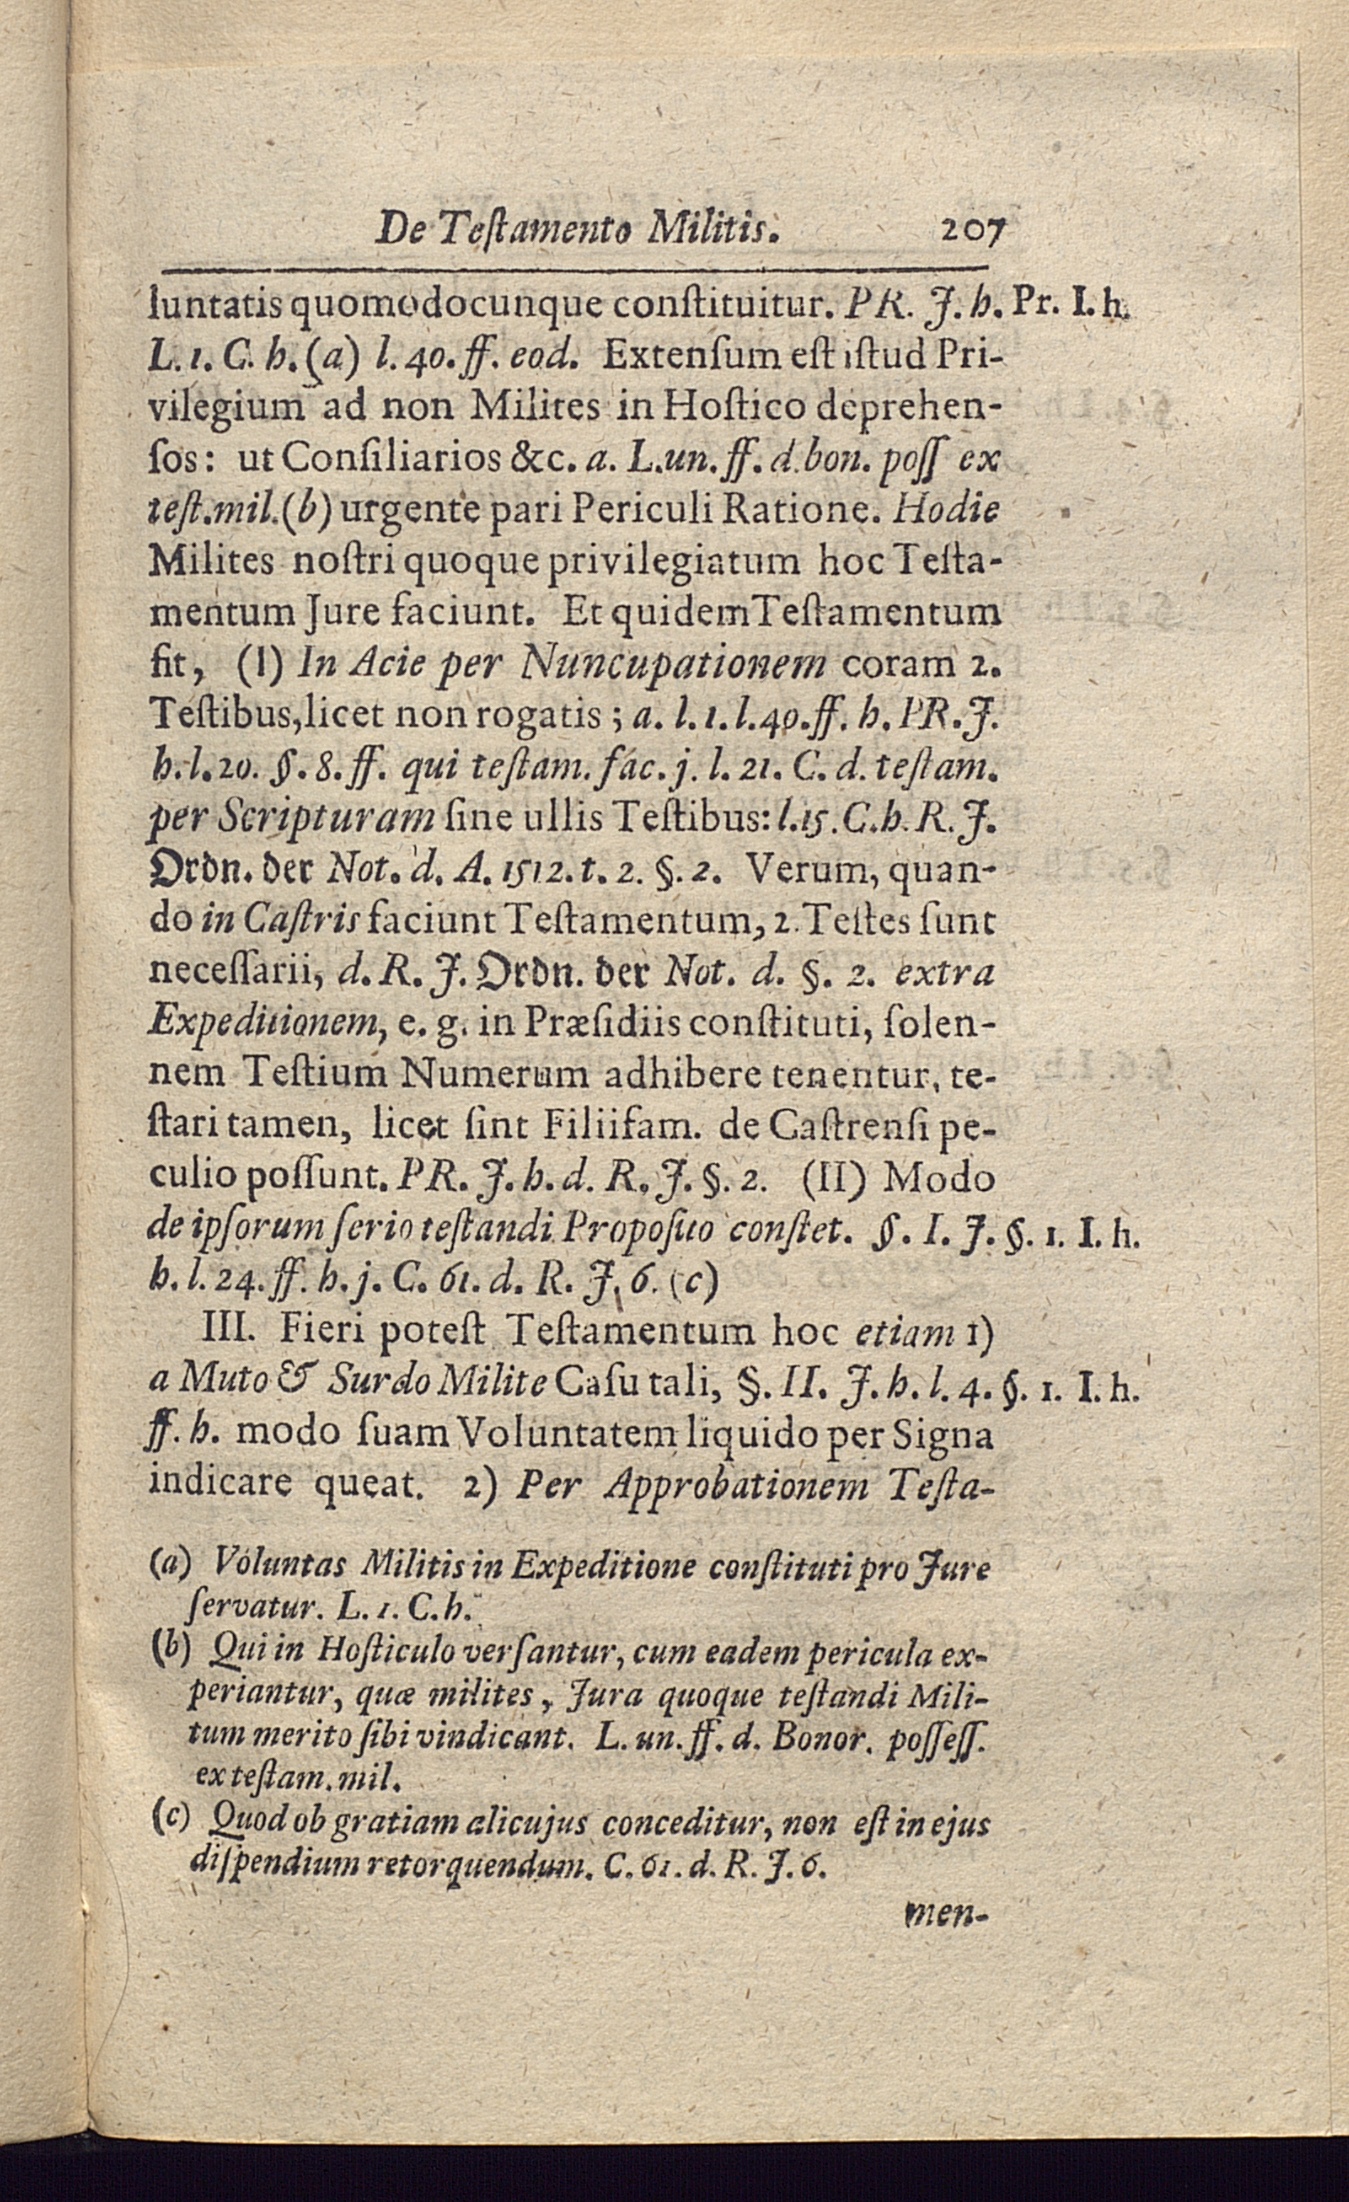 De Teſtamento Militis. 207
luntatis quomodocunque conſtituitur. PR. J. h. Pr. I. h.
L. 1. C. h. (a) l. 40. ff. eod. Extenſum eſt iſtud Pri-
vilegium ad non Milites in Hoſtico deprehen-
ſos: ut Conſiliarios &c. a. L. un. ff. d. bon. poſſ ex
teſt. mil. (b) urgente pari Periculi Ratione. Hodie
Milites noſtri quoque privilegiatum hoc Teſta-
mentum Jure faciunt. Et quidem Teſtamentum
fit, (I) In Acie per Nuncupationem coram 2.
Teſtibus, licet non rogatis; a. l. 1. l. 40. ff. h. PR. J.
h. l. 20. §. 8. ff. qui teſtam. fac. j. l. 21. C. d. teſtam.
per Scripturam ſine ullis Teſtibus: l. 15. C. h. R. J.
Ordn. der Not. d. A. 1512. t. 2. §. 2. Verum, quan-
do in Caſtris faciunt Teſtamentum, 2. Teſtes ſunt
neceſſarii, d. R. J. Ordn. der Not. d. §. 2. extra
Expeditionem, e. g. in Præſidiis conſtituti, ſolen-
nem Teſtium Numerum adhibere tenentur, te-
ſtari tamen, licet ſint Filiifam. de Caſtrenſi pe-
culio poſſunt. PR. J. h. d. R. J. §. 2. (II) Modo
de ipſorum ſerio teſtandi Propoſito conſtet. §. I. J. §. 1. I. h.
h. l. 24. ff. h. j. C. 61. d. R. J. 6. (c)
III. Fieri poteſt Teſtamentum hoc etiam 1)
a Muto & Surdo Milite Caſu tali, §. II. J. h. l. 4. §. 1. I. h.
ff. h. modo ſuam Voluntatem liquido per Signa
indicare queat. 2) Per Approbationem Teſta-
(a) Voluntas Militis in Expeditione conſtituti pro Jure
ſervatur. L. 1. C. h.
(b) Qui in Hoſticulo verſantur, cum eadem pericula ex-
periantur, quæ milites, Jura quoque teſtandi Mili-
tum merito ſibi vindicant. L. un. ff. d. Bonor. poſſeſſ.
ex teſtam. mil.
(c) Quod ob gratiam alicujus conceditur, non eſt in ejus
diſpendium retorquendum. C. 61. d. R. J. 6.
men-